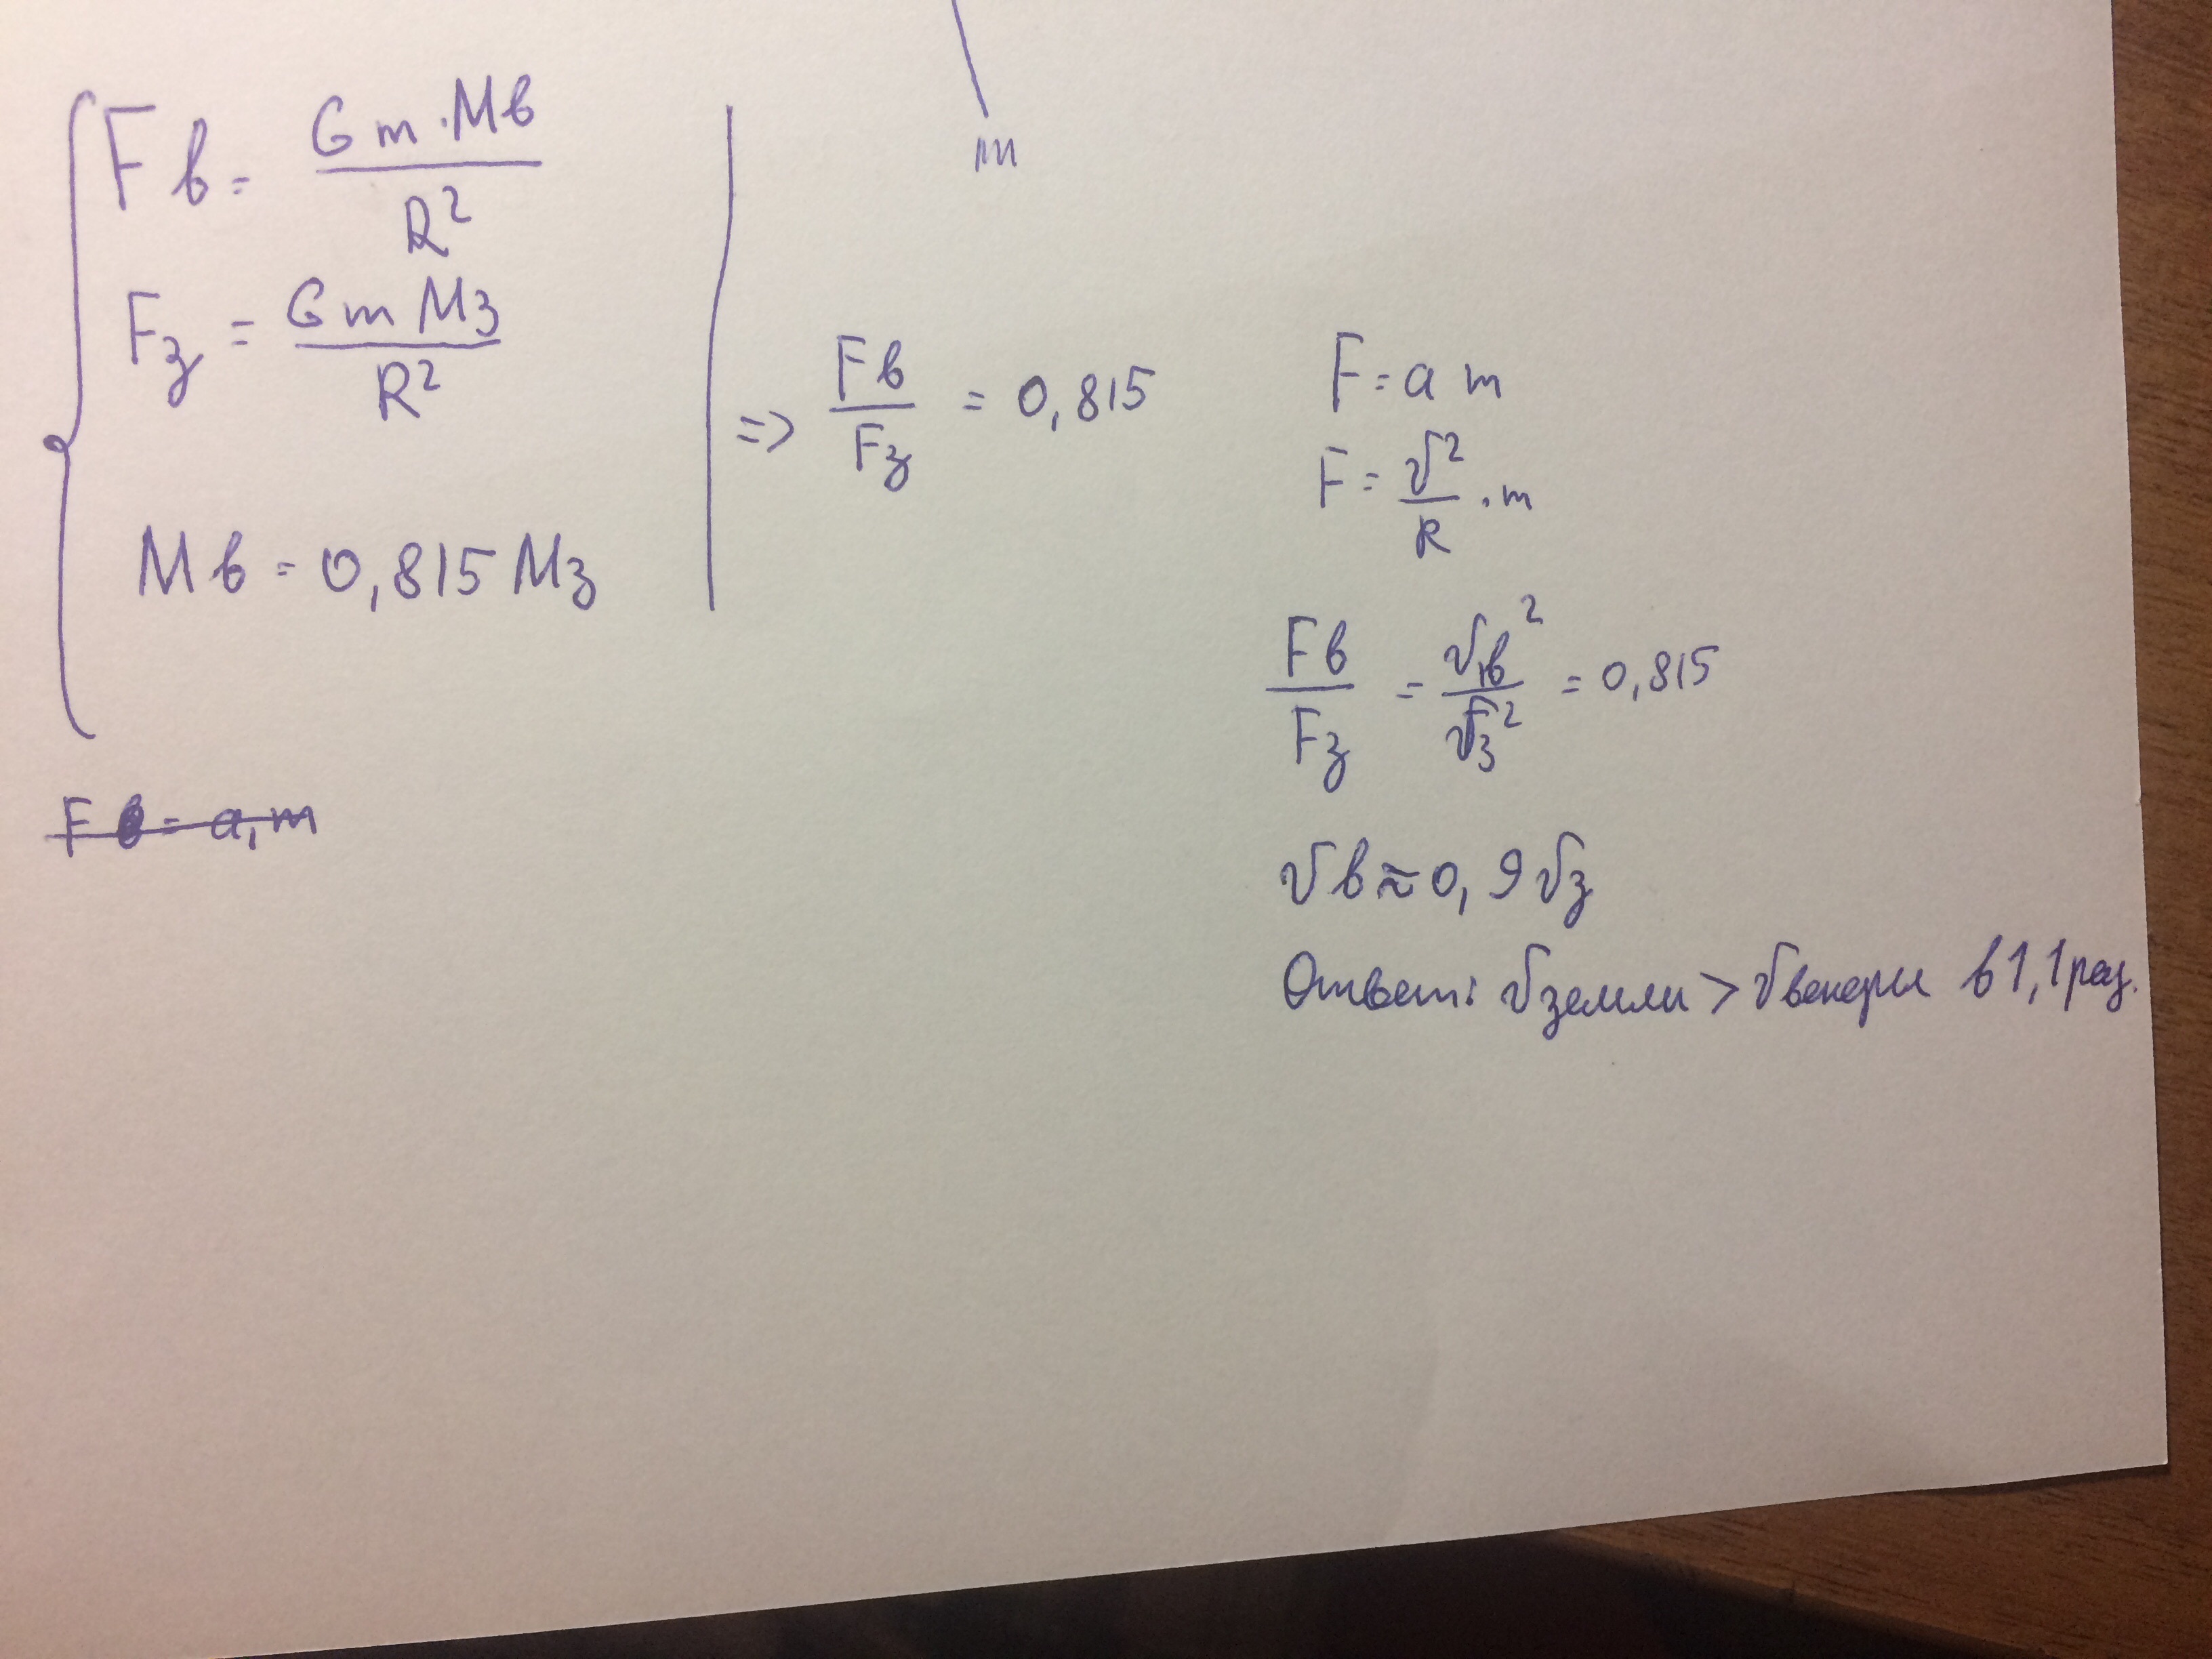 m
Fв = G m · Mв / R²
Fз = G m Mз / R²
Mв = 0,815 Mз
=> Fв / Fз = 0,815
F в = a, m
F = a m
F = v² / R · m
Fв / Fз = v1в² / vз² = 0,815
vв ≈ 0,9 vз
Ответ: v земли > v венеры в 1,1 раз.